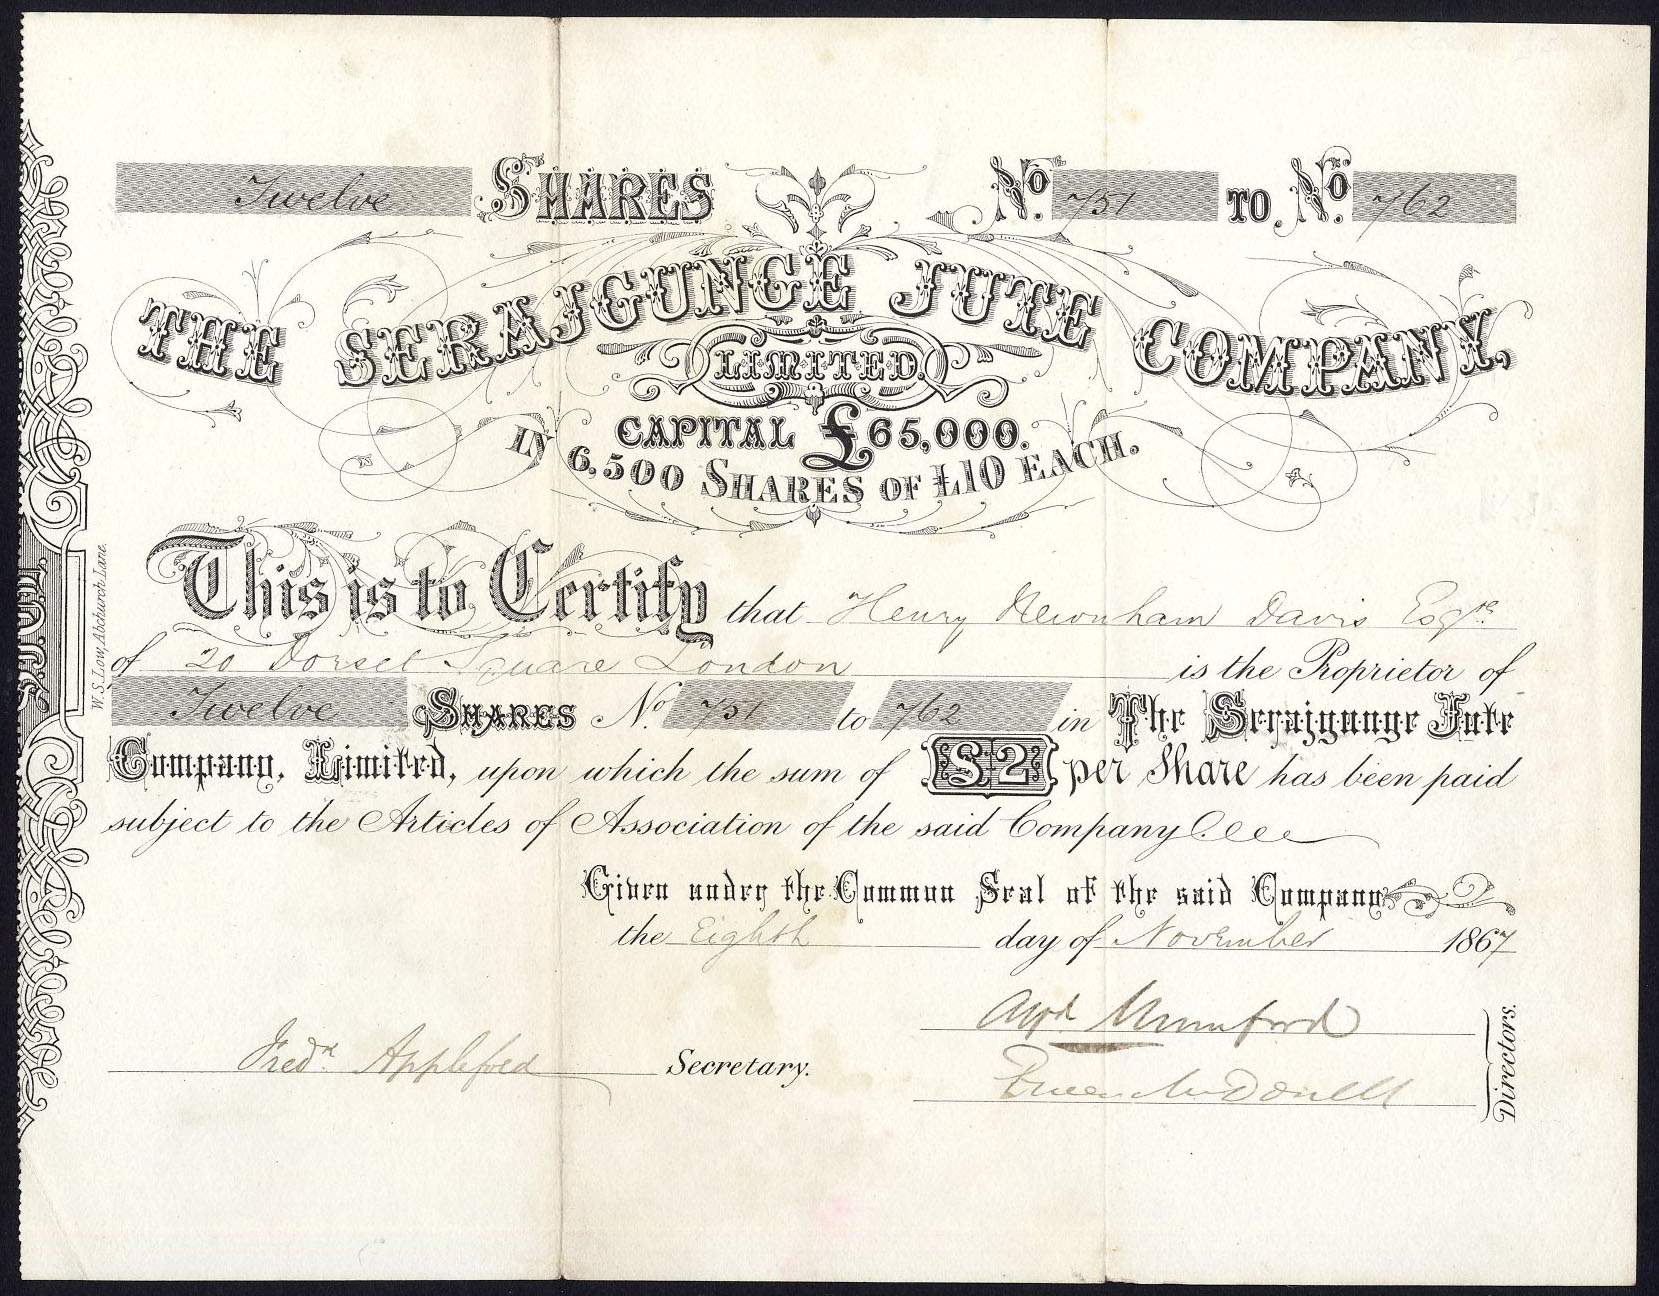 Twelve SHARES No. 751 TO No. 762
THE SERAJGUNGE JUTE COMPANY,
LIMITED.
CAPITAL £65,000.
IN 6,500 SHARES OF £10 EACH.
This is to Certify that Henry Newnham Davis Esqre.
of 20 Dorset Square London is the Proprietor of
Twelve SHARES No. 751 to 762 in The Serajgunge Jute
Company, Limited, upon which the sum of £2 per Share has been paid
subject to the Articles of Association of the said Company.
Given under the Common Seal of the said Company
the Eighth day of November 1867
Mumford
Fredk. Secretary.
McDonell
Directors.
W.S. Low, Abchurch Lane.